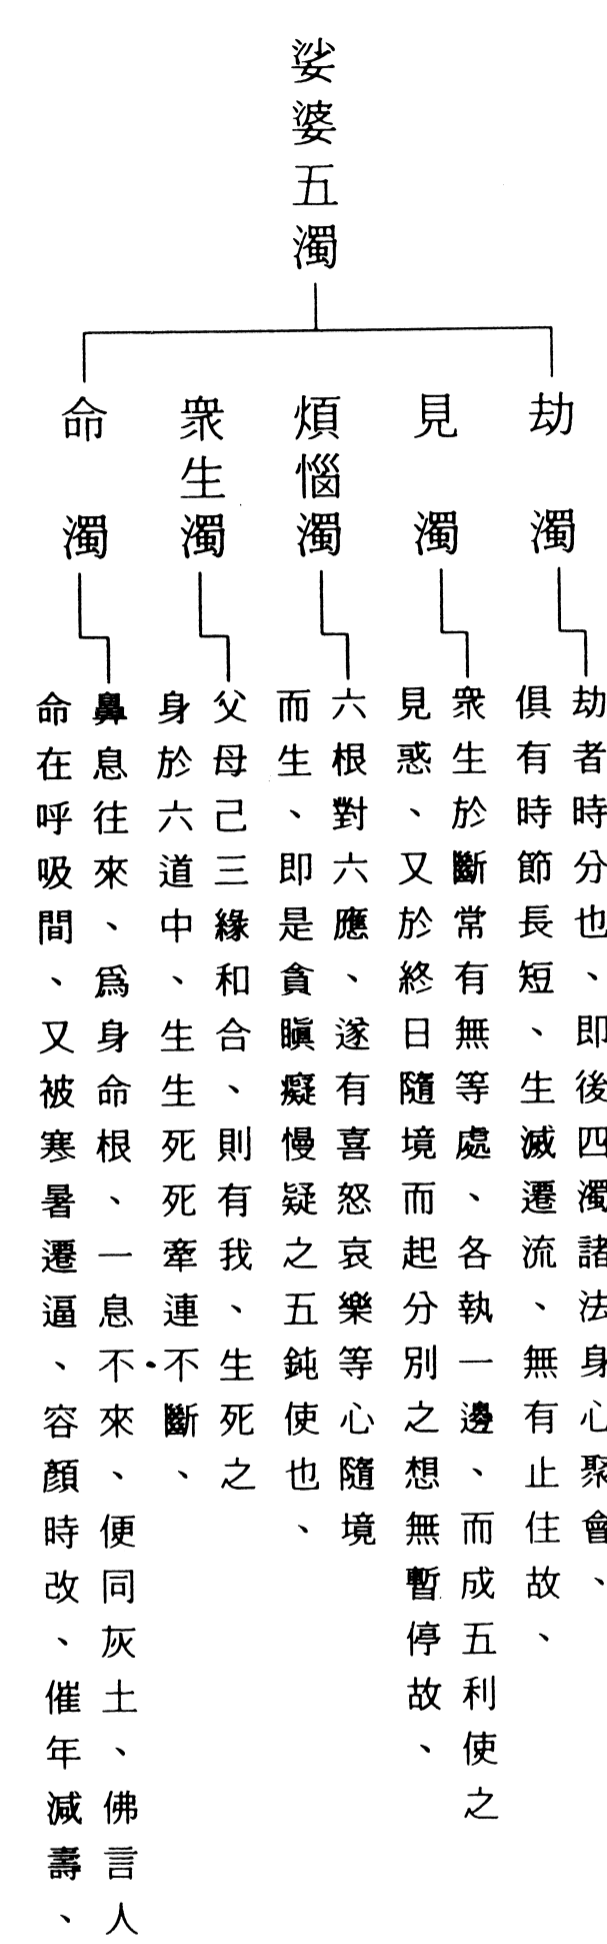 娑婆五濁
劫濁
劫者時分也、即後四濁諸法身心聚會、
俱有時節長短、生滅遷流、無有止住故、
見濁
衆生於斷常有無等處、各執一邊、而成五利使之
見惑、又於終日隨境而起分別之想無暫停故、
煩惱濁
六根對六應、遂有喜怒哀樂等心隨境
而生、即是貪瞋癡慢疑之五鈍使也、
衆生濁
父母己三緣和合、則有我、生死之
身於六道中、生生死死牽連不斷、
命濁
鼻息往來、爲身命根、一息不來、便同灰土、佛言人
命在呼吸間、又被寒暑遷逼、容顏時改、催年減壽、